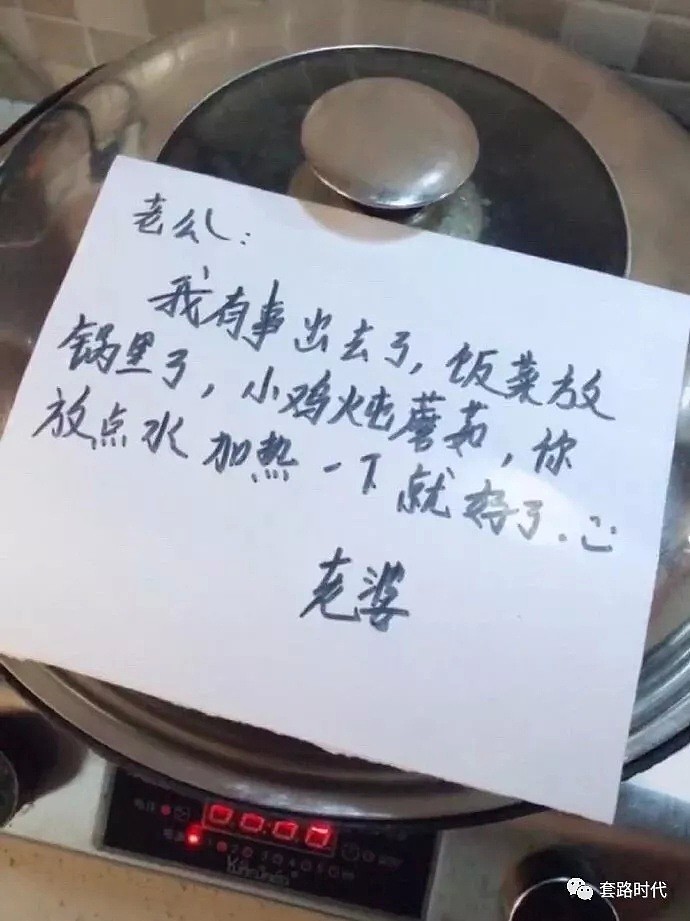 老公:
我有事出去了,饭菜放
锅里了,小鸡炖蘑菇,你
放点水加热一下就好了.
老婆
00:07
套路时代